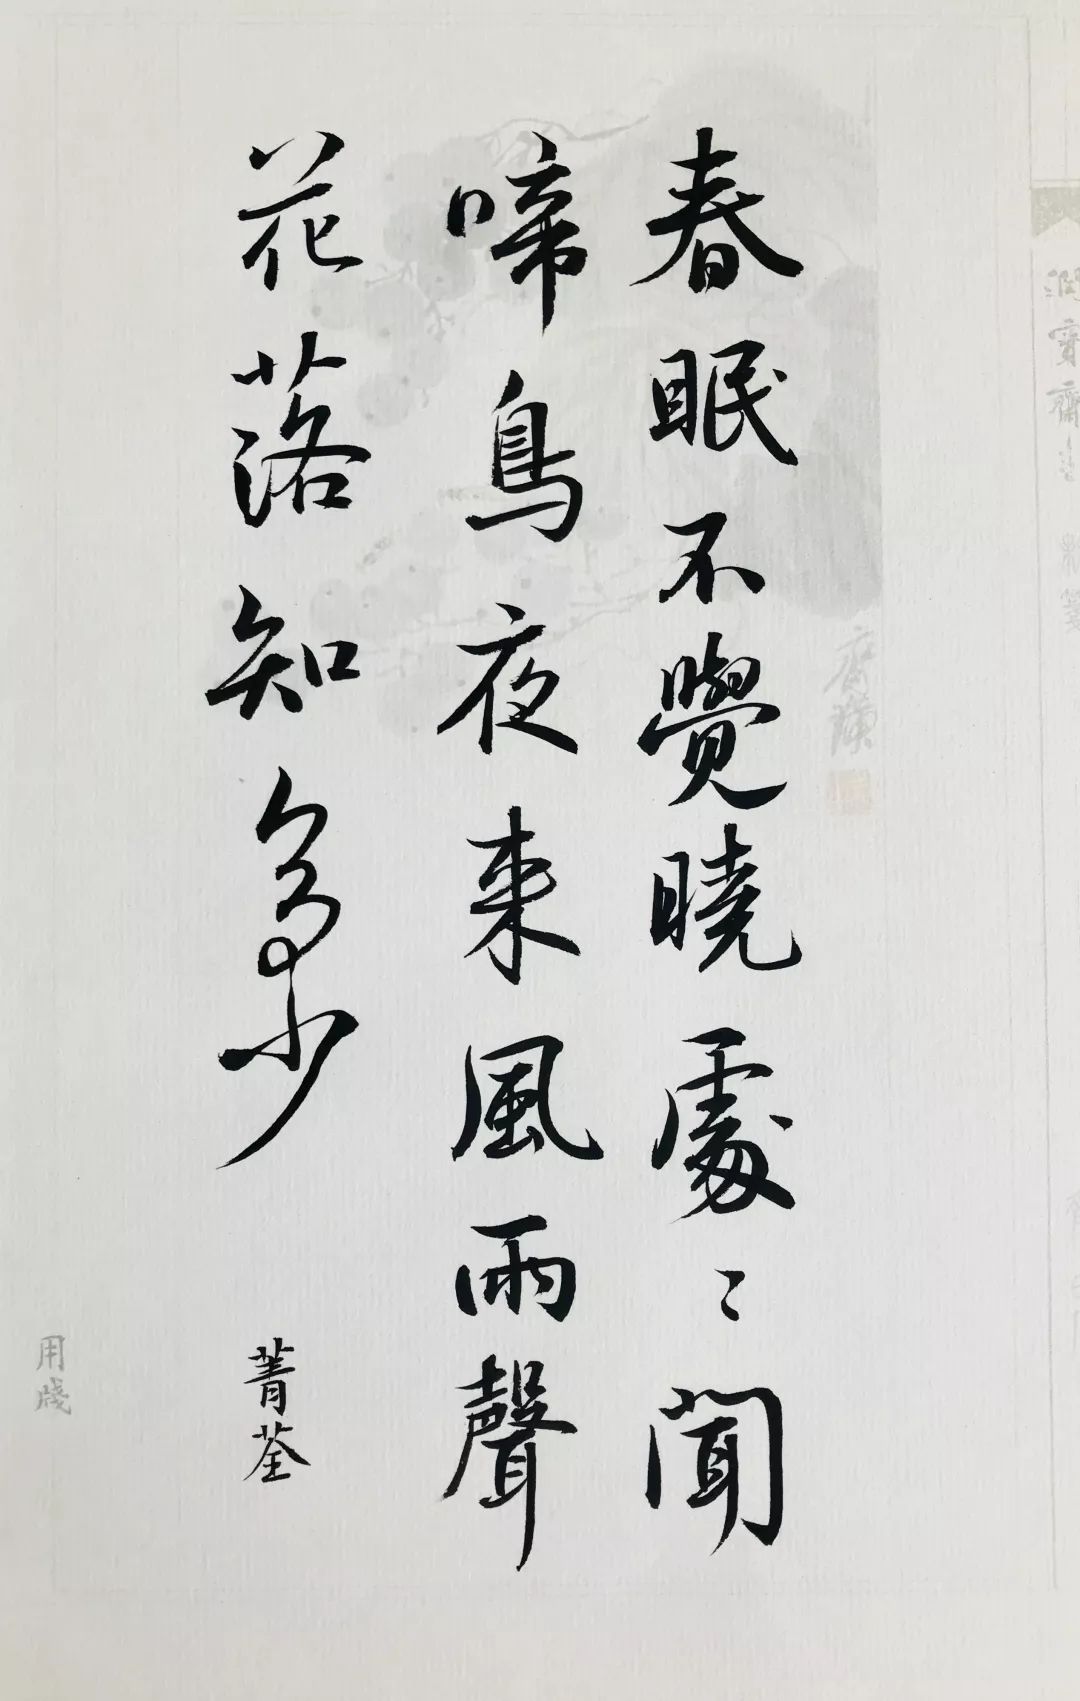 春眠不覺曉處〻聞
啼鳥夜来風雨聲
花落知多少
菁荃
用牋